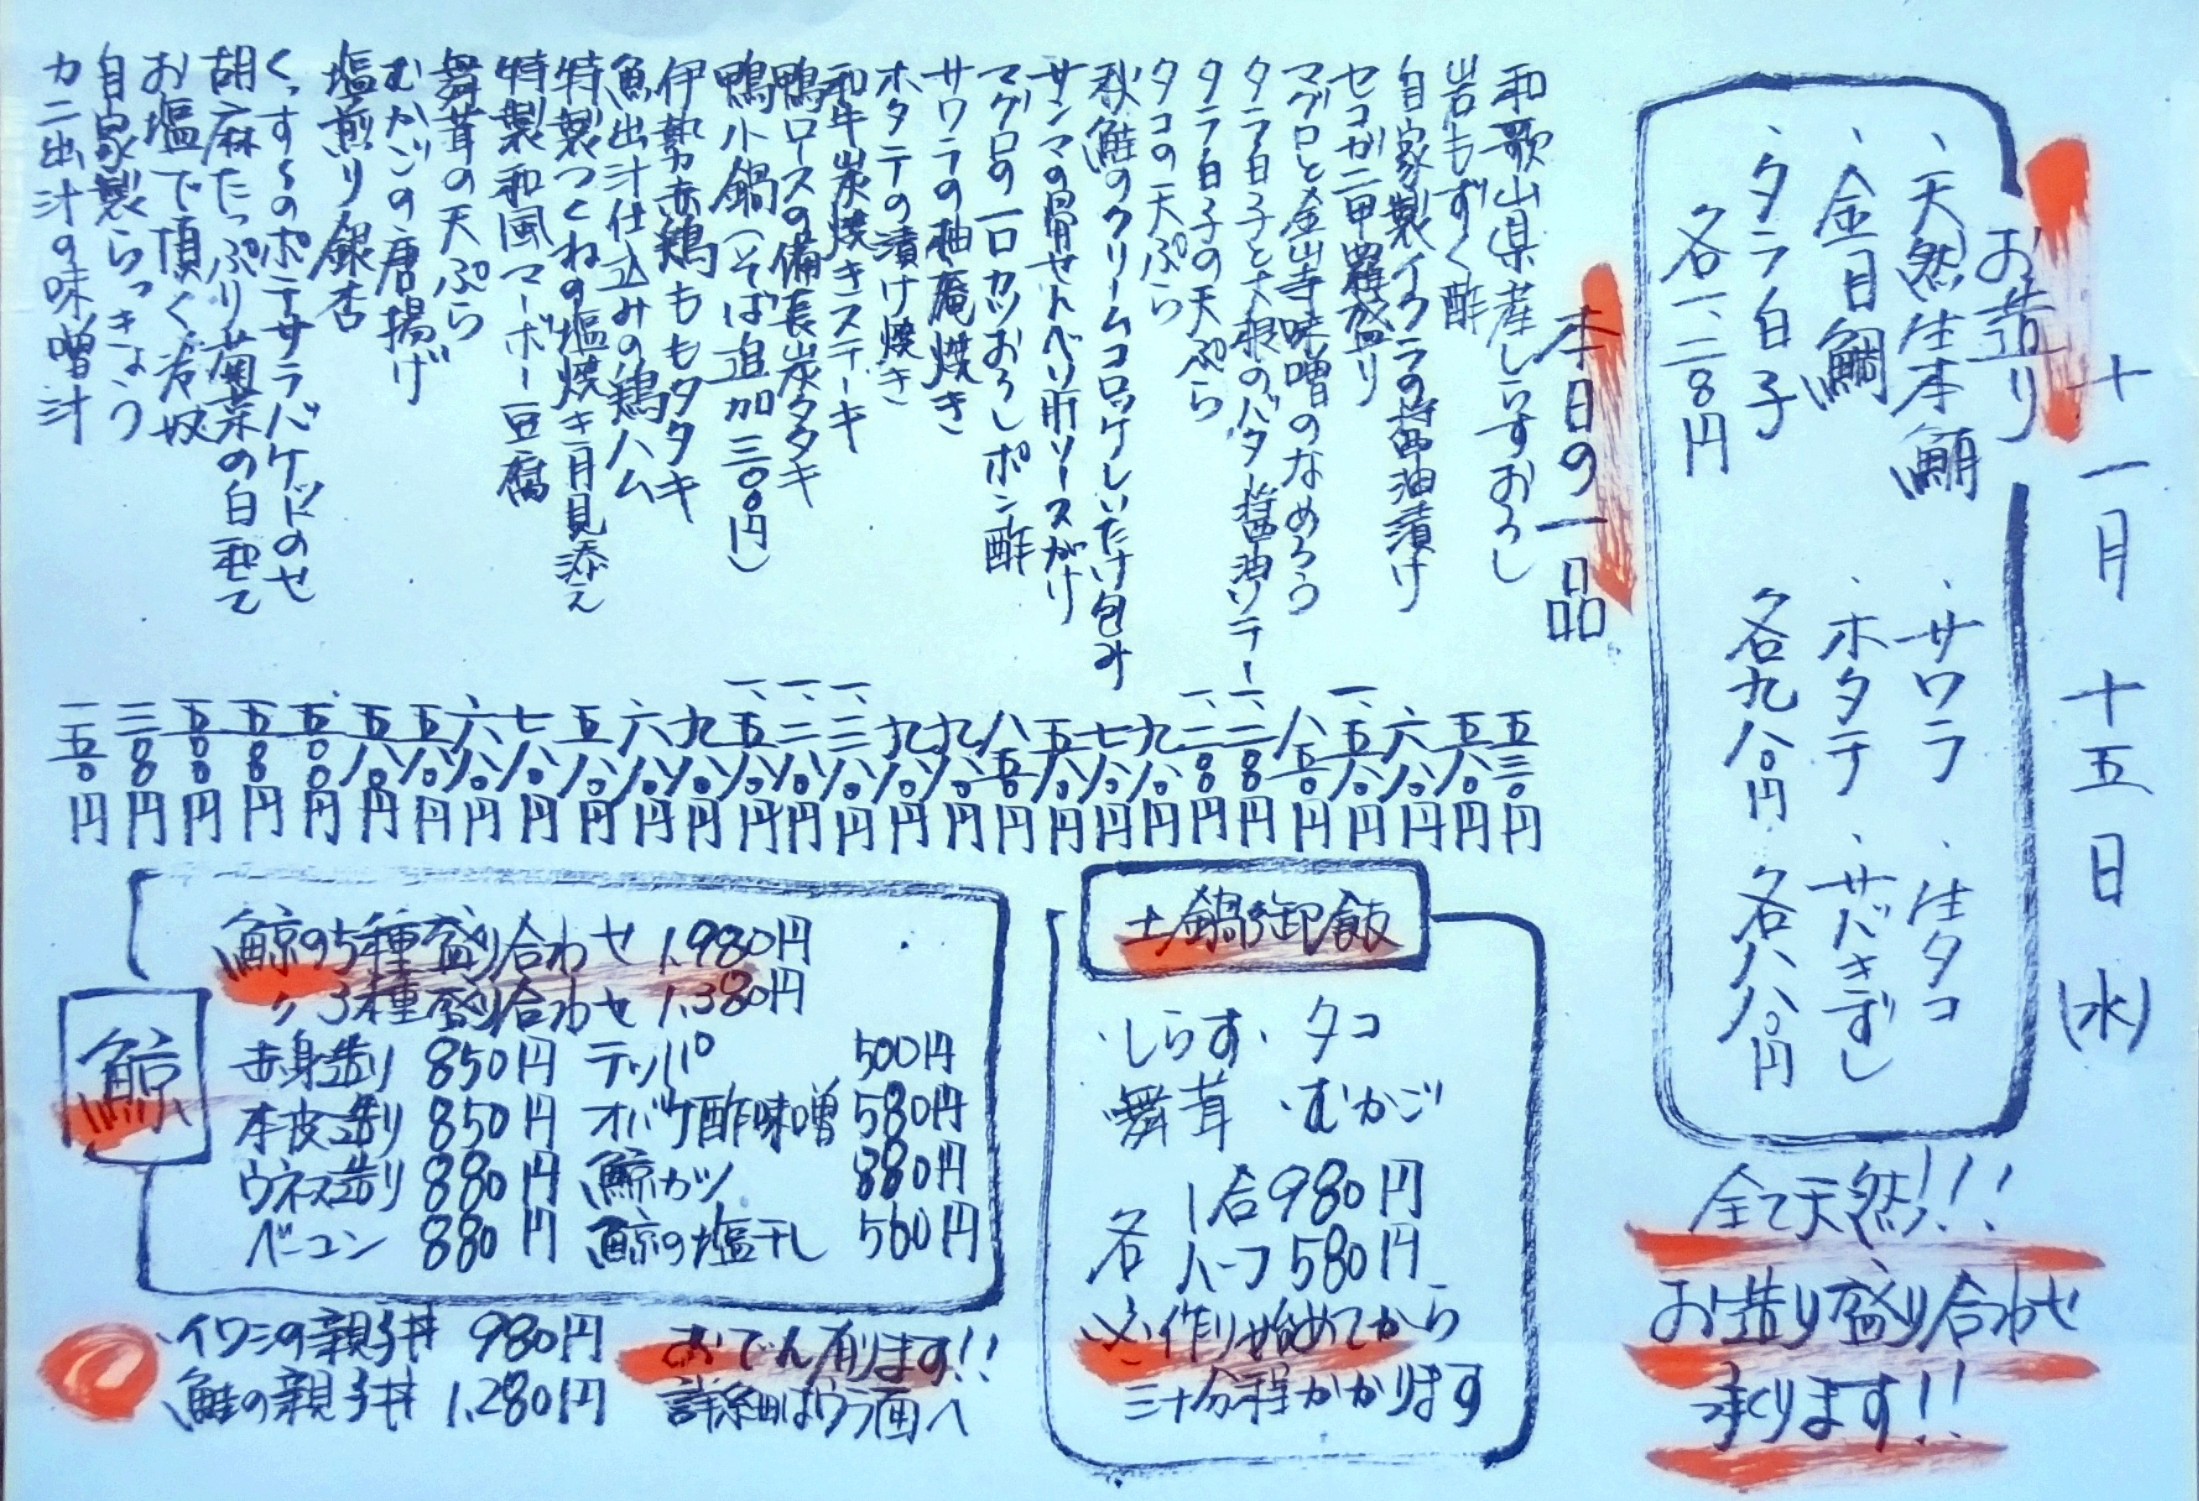 十一月十五日(水)
お造り
、天然生本鮪
、金目鯛
、タラ白子
各一、二八〇円
、サワラ
、ホタテ
各九八〇円
、生タコ
、サバきずし
各八八〇円
全て天然!!!
お造り盛り合わせ
承ります!!
本日の一品
和歌山県産しらすおろし 五三〇円
岩もずく酢 五八〇円
自家製イクラの醤油漬け 六八〇円
セコガニ甲羅盛り 一、五八〇円
マグロと金山寺味噌のなめろう 八五〇円
タラ白子と大根のバタ醤油ソテー 一、二八〇円
タラ白子の天ぷら 一、二八〇円
タコの天ぷら 九八〇円
秋鮭のクリームコロッケしいたけ包み 七八〇円
サンマの骨せんべい肝ソースがけ 五八〇円
マグロの一口カツおろしポン酢 八五〇円
サワラの柚庵焼き 九八〇円
ホタテの漬け焼き 九八〇円
和牛炭焼きステーキ 一、三八〇円
鴨ロースの備長炭タタキ 一、二八〇円
鴨小鍋(そば追加三〇〇円) 一、五八〇円
伊勢赤鶏ももタタキ 九八〇円
魚出汁仕込みの鶏ハム 六八〇円
特製つくねの塩焼き月見添え 五八〇円
特製和風マーボー豆腐 七八〇円
舞茸の天ぷら 六八〇円
むかごの唐揚げ 五八〇円
塩煎り銀杏 五八〇円
くっす〜のポテサラバケットのせ 五〇〇円
胡麻たっぷり菊菜の白和て 五〇〇円
お塩で頂く冷奴 五〇〇円
自家製らっきょう 三〇〇円
カニ出汁の味噌汁 一五〇円
土鍋御飯
・しらす・タコ
舞茸・むかご
各 1合980円
ハーフ580円
必作り始めてから
三十分程かかります
鯨
鯨の5種盛り合わせ 1,980円
〃 3種盛り合わせ 1,380円
赤身造り 850円 テッパ 500円
本皮造り 850円 オバケ酢味噌 580円
ウネス造り 880円 鯨カツ 880円
ベーコン 880円 鯨の塩干し 560円
・イワシの親子丼 980円
・鮭の親子丼 1,280円
おでん有ります!!
詳細はウラ面へ